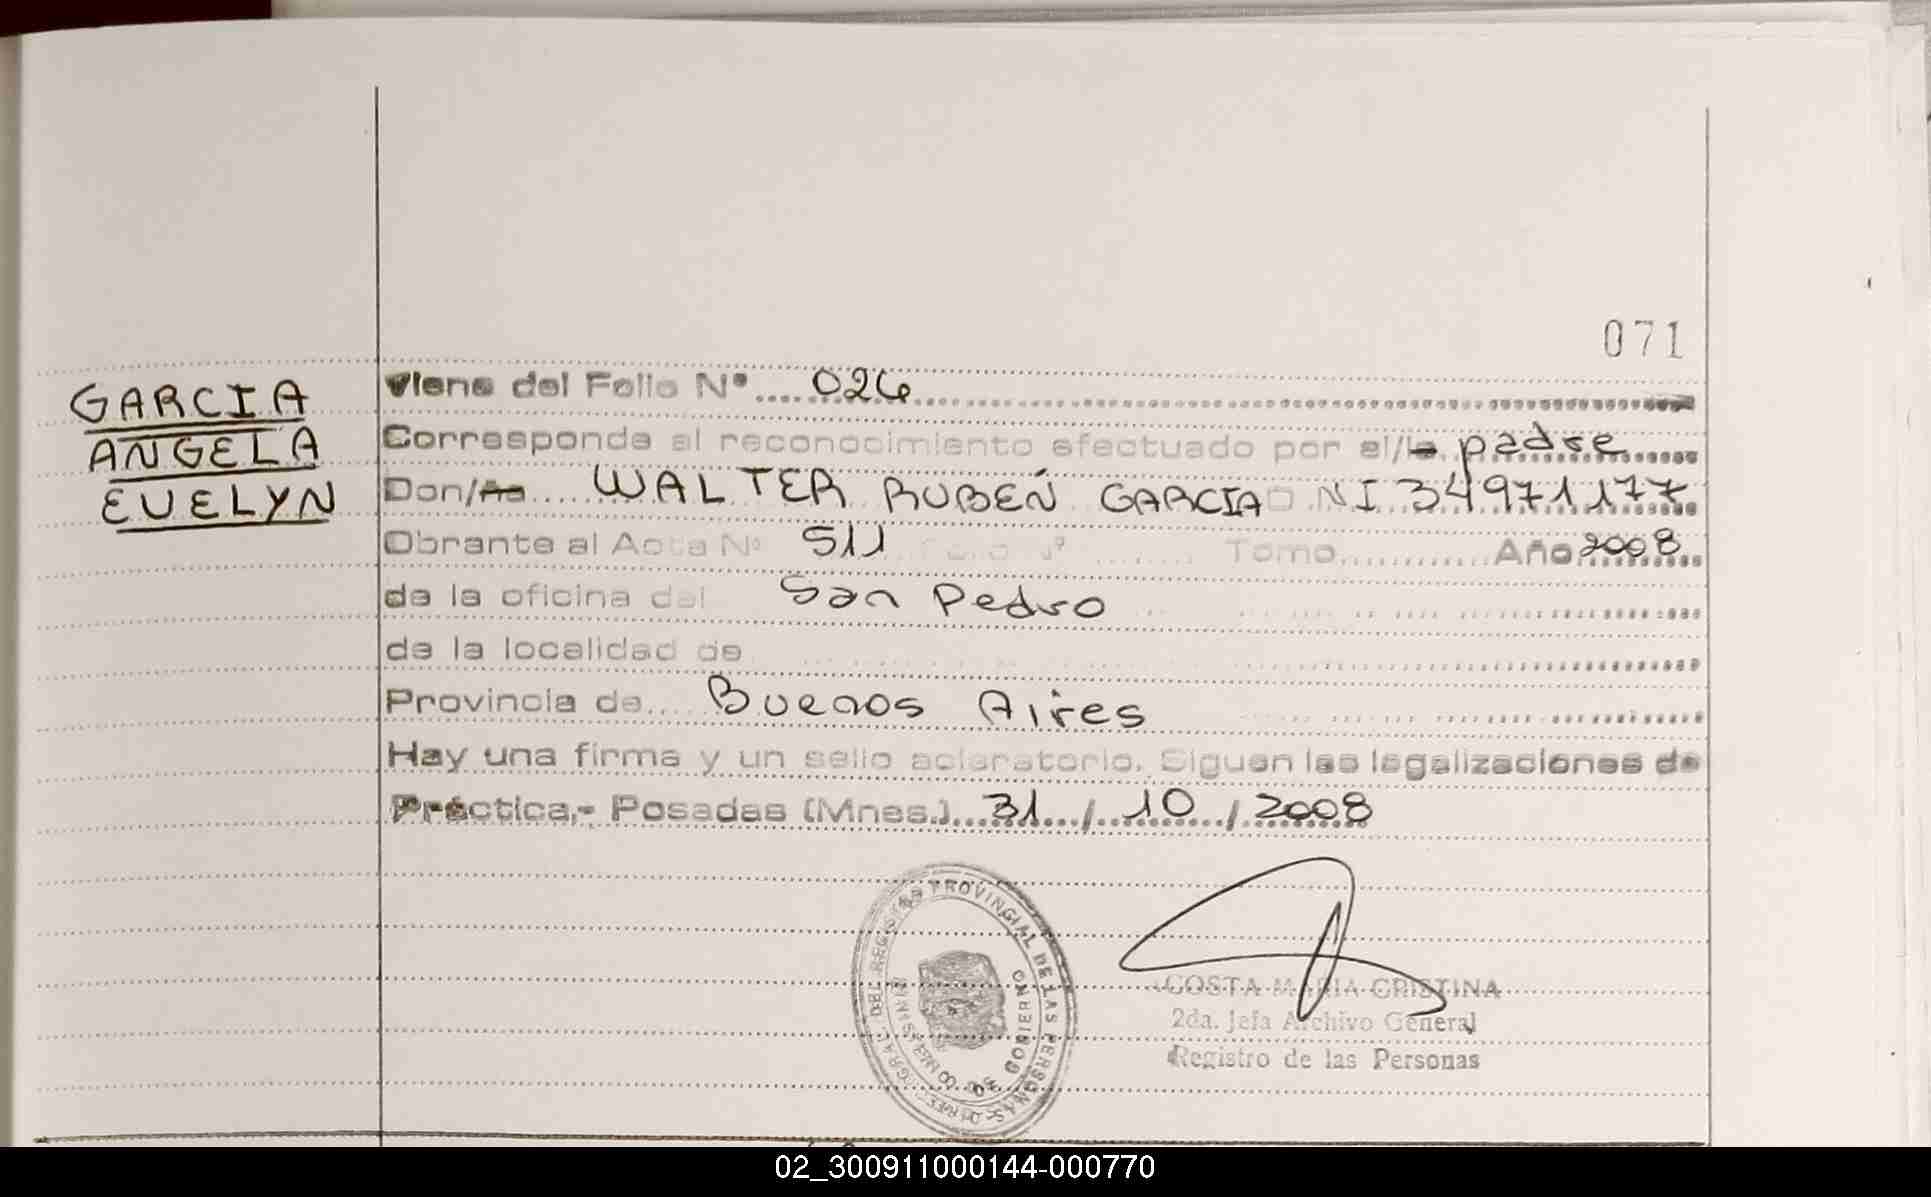 071
GARCIA
ANGELA
EVELYN
Viene del Folio Nº.....026
Corresponde al reconocimiento efectuado por el/la padre
Don/ña.....WALTER RUBÉN GARCIA D NI 34971177
Obrante al Acta Nº 511 Folio Nº ........ Tomo............Año 2008
de la oficina del San Pedro
de la localidad de
Provincia de.....Buenos Aires
Hay una firma y un sello aclaratorio. Siguen las legalizaciones de
Práctica.- Posadas (Mnes.)...31.../...10.../2008
REGISTRO PROVINCIAL DE LAS PERSONAS
GOBIERNO
MISIONES
COSTA MARIA CRISTINA
2da. Jefa Archivo General
Registro de las Personas
02_300911000144-000770